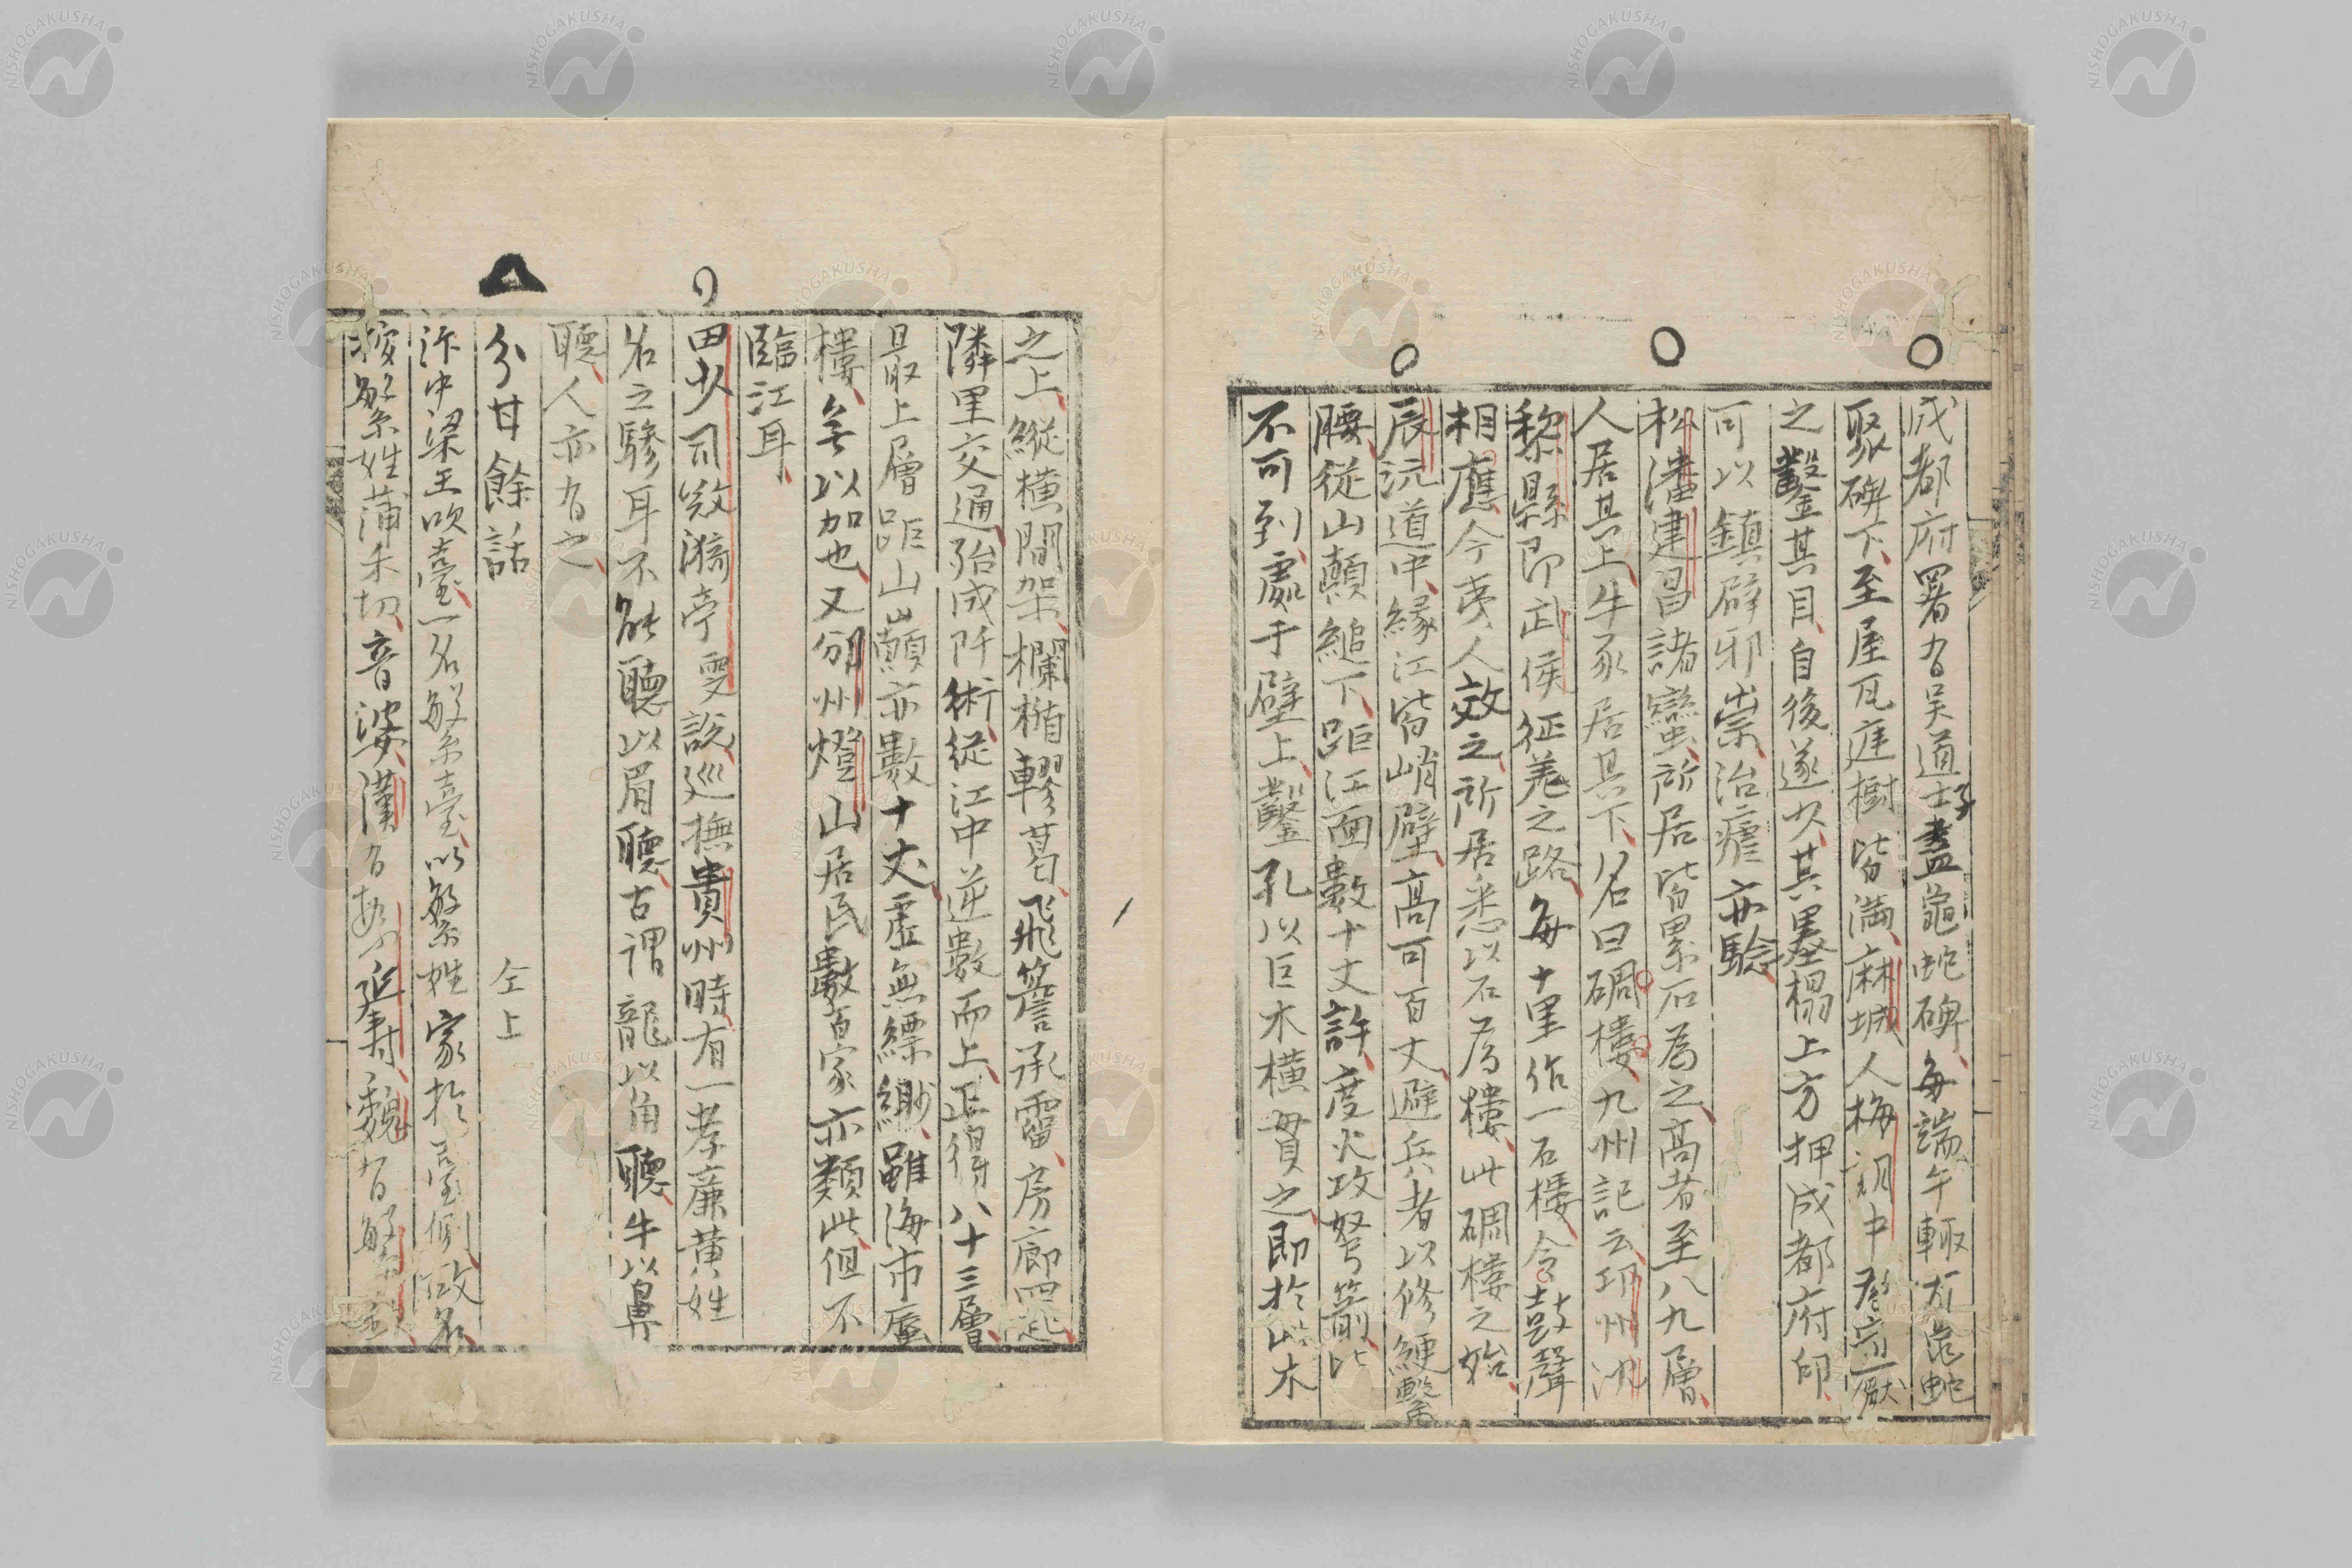 成都府署有吴道子畫龜蛇碑每端午輒有龜蛇
聚碑下至屋瓦庭樹皆滿麻城人梅 中 之
之鑿其目自後遂少其墨榻上方押成都府印
可以鎮辟邪祟治瘧亦驗
松潘建昌諸蠻所居皆累石為之高者至八九層
人居其上牛豕居其下名曰碉樓九州記云邛州
黎縣即武侯征羌之路每十里作一石樓令鼓聲
相應今夷人效之所居悉以石為樓此碉樓之始
辰沅道中緣江皆峭壁高可百丈避兵者以修綆繫
腰從山顛縋下距江面數十丈許度火攻弩箭
不可到處于壁上鑿孔以巨木橫貫之即於此木
之上縱橫間架欄楯轇葛飛簷承霤房廊四起
隣里交通殆成阡術從江中逆數而上正得八十三層
最上層距山顛亦數十丈虛無縹緲雖海市蜃
樓無以加也又 州燈山居民數百家亦類此但不
臨江耳
田少司 漪亭雯說巡撫貴州時有一孝廉黃姓
名之驂耳不能聽以眉聽古謂龍以角聽牛以鼻
聽人亦有之
分甘餘話 仝上
汴中梁王吹臺一名繁臺以繁姓家於臺側故名
按繁姓蒲禾切音婆漢有 延壽魏有繁欽
NISHOGAKUSHA